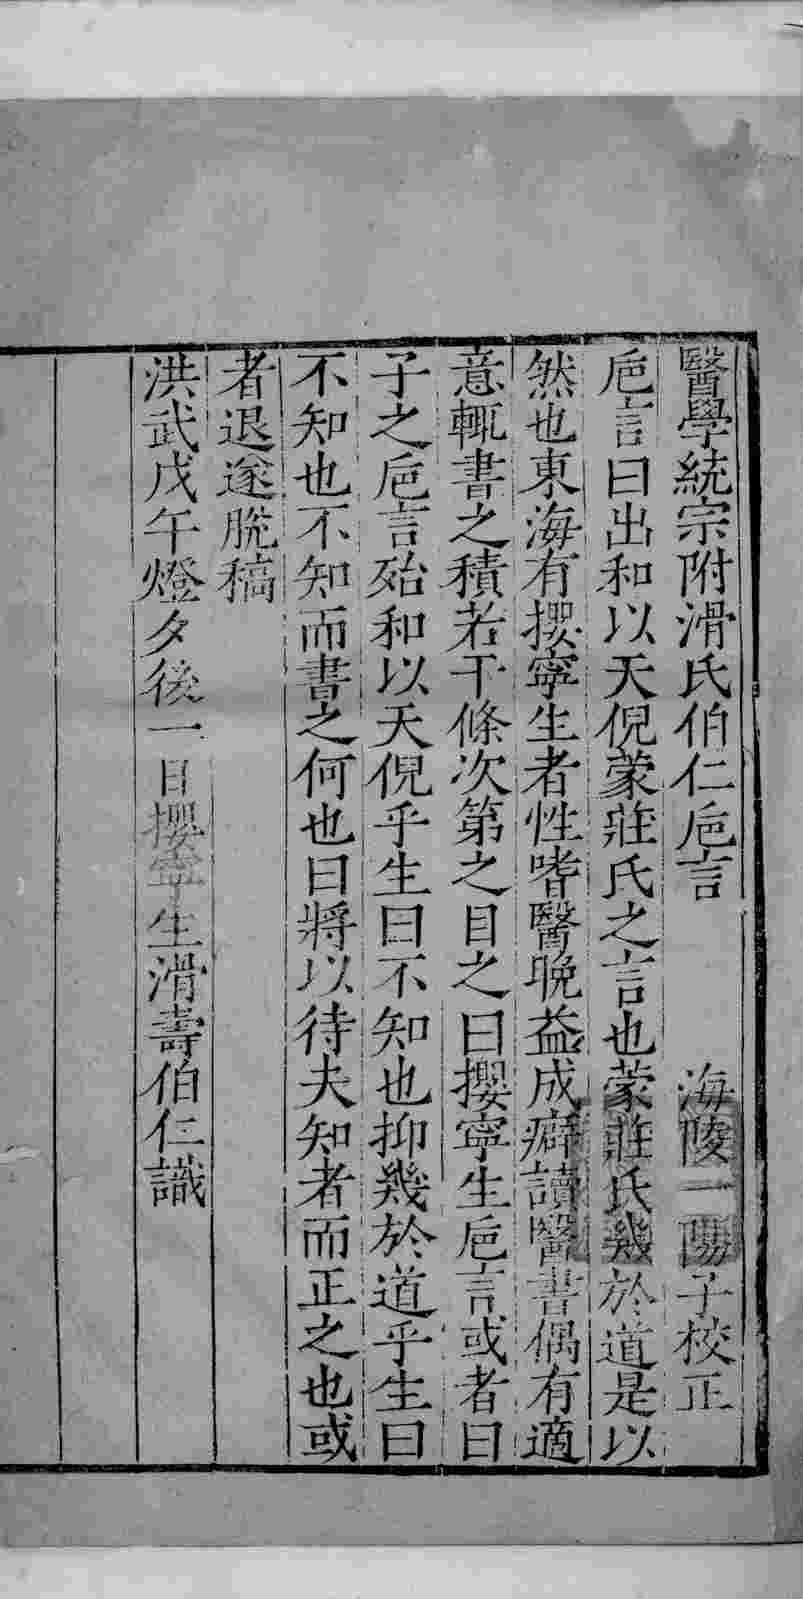 醫學統宗附滑氏伯仁巵言　海陵一陽子校正
巵言曰出和以天倪蒙莊氏之言也蒙莊氏幾於道是以
然也東海有攖寧生者性嗜醫晚益成癖讀醫書偶有適
意輒書之積若干條次第之目之曰攖寧生巵言或者曰
子之巵言殆和以天倪乎生曰不知也抑幾於道乎生曰
不知也不知而書之何也曰將以待夫知者而正之也或
者退遂脫稿
洪武戊午燈夕後一日攖寧生滑壽伯仁識